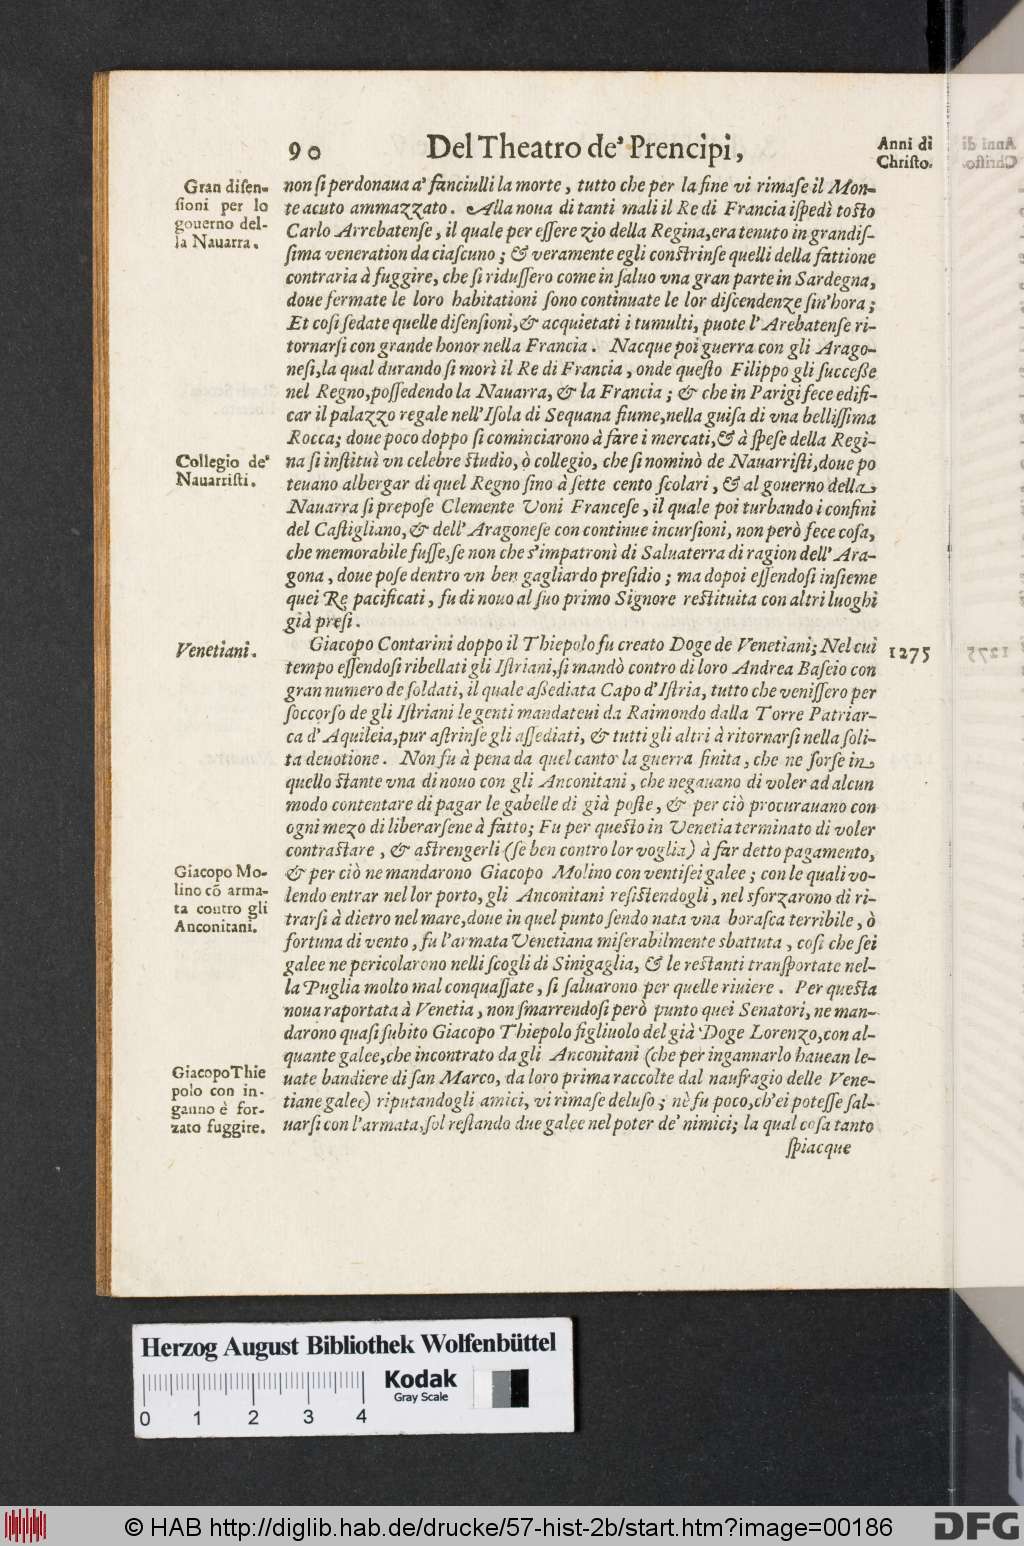 90 Del Theatro de' Prencipi,
Anni di
Christo.
Gran disen-
sioni per lo
gouerno del-
la Nauarra.
non si perdonaua a' fanciulli la morte, tutto che per la fine vi rimase il Mon-
te acuto ammazzato. Alla noua di tanti mali il Re di Francia ispedì tosto
Carlo Arrebatense, il quale per essere zio della Regina, era tenuto in grandis-
sima veneration da ciascuno; & veramente egli constrinse quelli della fattione
contraria à fuggire, che si ridussero come in saluo vna gran parte in Sardegna,
doue fermate le loro habitationi sono continuate le lor discendenze sin'hora;
Et cosi sedate quelle disensioni, & acquietati i tumulti, puote l'Arebatense ri-
tornarsi con grande honor nella Francia. Nacque poi guerra con gli Arago-
nesi, la qual durando si morì il Re di Francia, onde questo Filippo gli successe
nel Regno, possedendo la Nauarra, & la Francia; & che in Parigi fece edifi-
car il palazzo regale nell'Isola di Sequana fiume, nella guisa di vna bellissima
Rocca; doue poco doppo si cominciarono à fare i mercati, & à spese della Regi-
Collegio de'
Nauarristi.
na si instituì vn celebre studio, ò collegio, che si nominò de Nauarristi, doue po
teuano albergar di quel Regno sino à sette cento scolari, & al gouerno della
Nauarra si prepose Clemente Voni Francese, il quale poi turbando i confini
del Castigliano, & dell'Aragonese con continue incursioni, non però fece cosa,
che memorabile fusse, se non che s'impatronì di Saluaterra di ragion dell'Ara-
gona, doue pose dentro vn ben gagliardo presidio; ma dopoi essendosi insieme
quei Re pacificati, fu di nouo al suo primo Signore restituita con altri luoghi
già presi.
Venetiani.
1275
Giacopo Contarini doppo il Thiepolo fu creato Doge de Venetiani; Nel cui
tempo essendosi ribellati gli Istriani, si mandò contro di loro Andrea Baseio con
gran numero de soldati, il quale assediata Capo d'Istria, tutto che venissero per
soccorso de gli Istriani le genti mandateui da Raimondo dalla Torre Patriar-
ca d'Aquileia, pur astrinse gli assediati, & tutti gli altri à ritornarsi nella soli-
ta deuotione. Non fu à pena da quel canto la guerra finita, che ne sorse in
quello stante vna di nouo con gli Anconitani, che negauano di voler ad alcun
modo contentare di pagar le gabelle di già poste, & per ciò procurauano con
ogni mezo di liberarsene à fatto; Fu per questo in Venetia terminato di voler
contrastare, & astrengerli (se ben contro lor voglia) à far detto pagamento,
Giacopo Mo-
lino cõ arma-
ta contro gli
Anconitani.
& per ciò ne mandarono Giacopo Molino con ventisei galee; con le quali vo-
lendo entrar nel lor porto, gli Anconitani resistendogli, nel sforzarono di ri-
trarsi à dietro nel mare, doue in quel punto sendo nata vna borasca terribile, ò
fortuna di vento, fu l'armata Venetiana miserabilmente sbattuta, cosi che sei
galee ne pericolarono nelli scogli di Sinigaglia, & le restanti transportate nel-
la Puglia molto mal conquassate, si saluarono per quelle riuiere. Per questa
noua raportata à Venetia, non smarrendosi però punto quei Senatori, ne man-
darono quasi subito Giacopo Thiepolo figliuolo del già Doge Lorenzo, con al-
quante galee, che incontrato da gli Anconitani (che per ingannarlo hauean le-
Giacopo Thie
polo con in-
ganno è for-
zato fuggire.
uate bandiere di san Marco, da loro prima raccolte dal naufragio delle Vene-
tiane galee) riputandogli amici, vi rimase deluso; nè fu poco, ch'ei potesse sal-
uarsi con l'armata, sol restando due galee nel poter de' nimici; la qual cosa tanto
spiacque
Herzog August Bibliothek Wolfenbüttel
Kodak
Gray Scale
0 1 2 3 4
© HAB http://diglib.hab.de/drucke/57-hist-2b/start.htm?image=00186
DFG